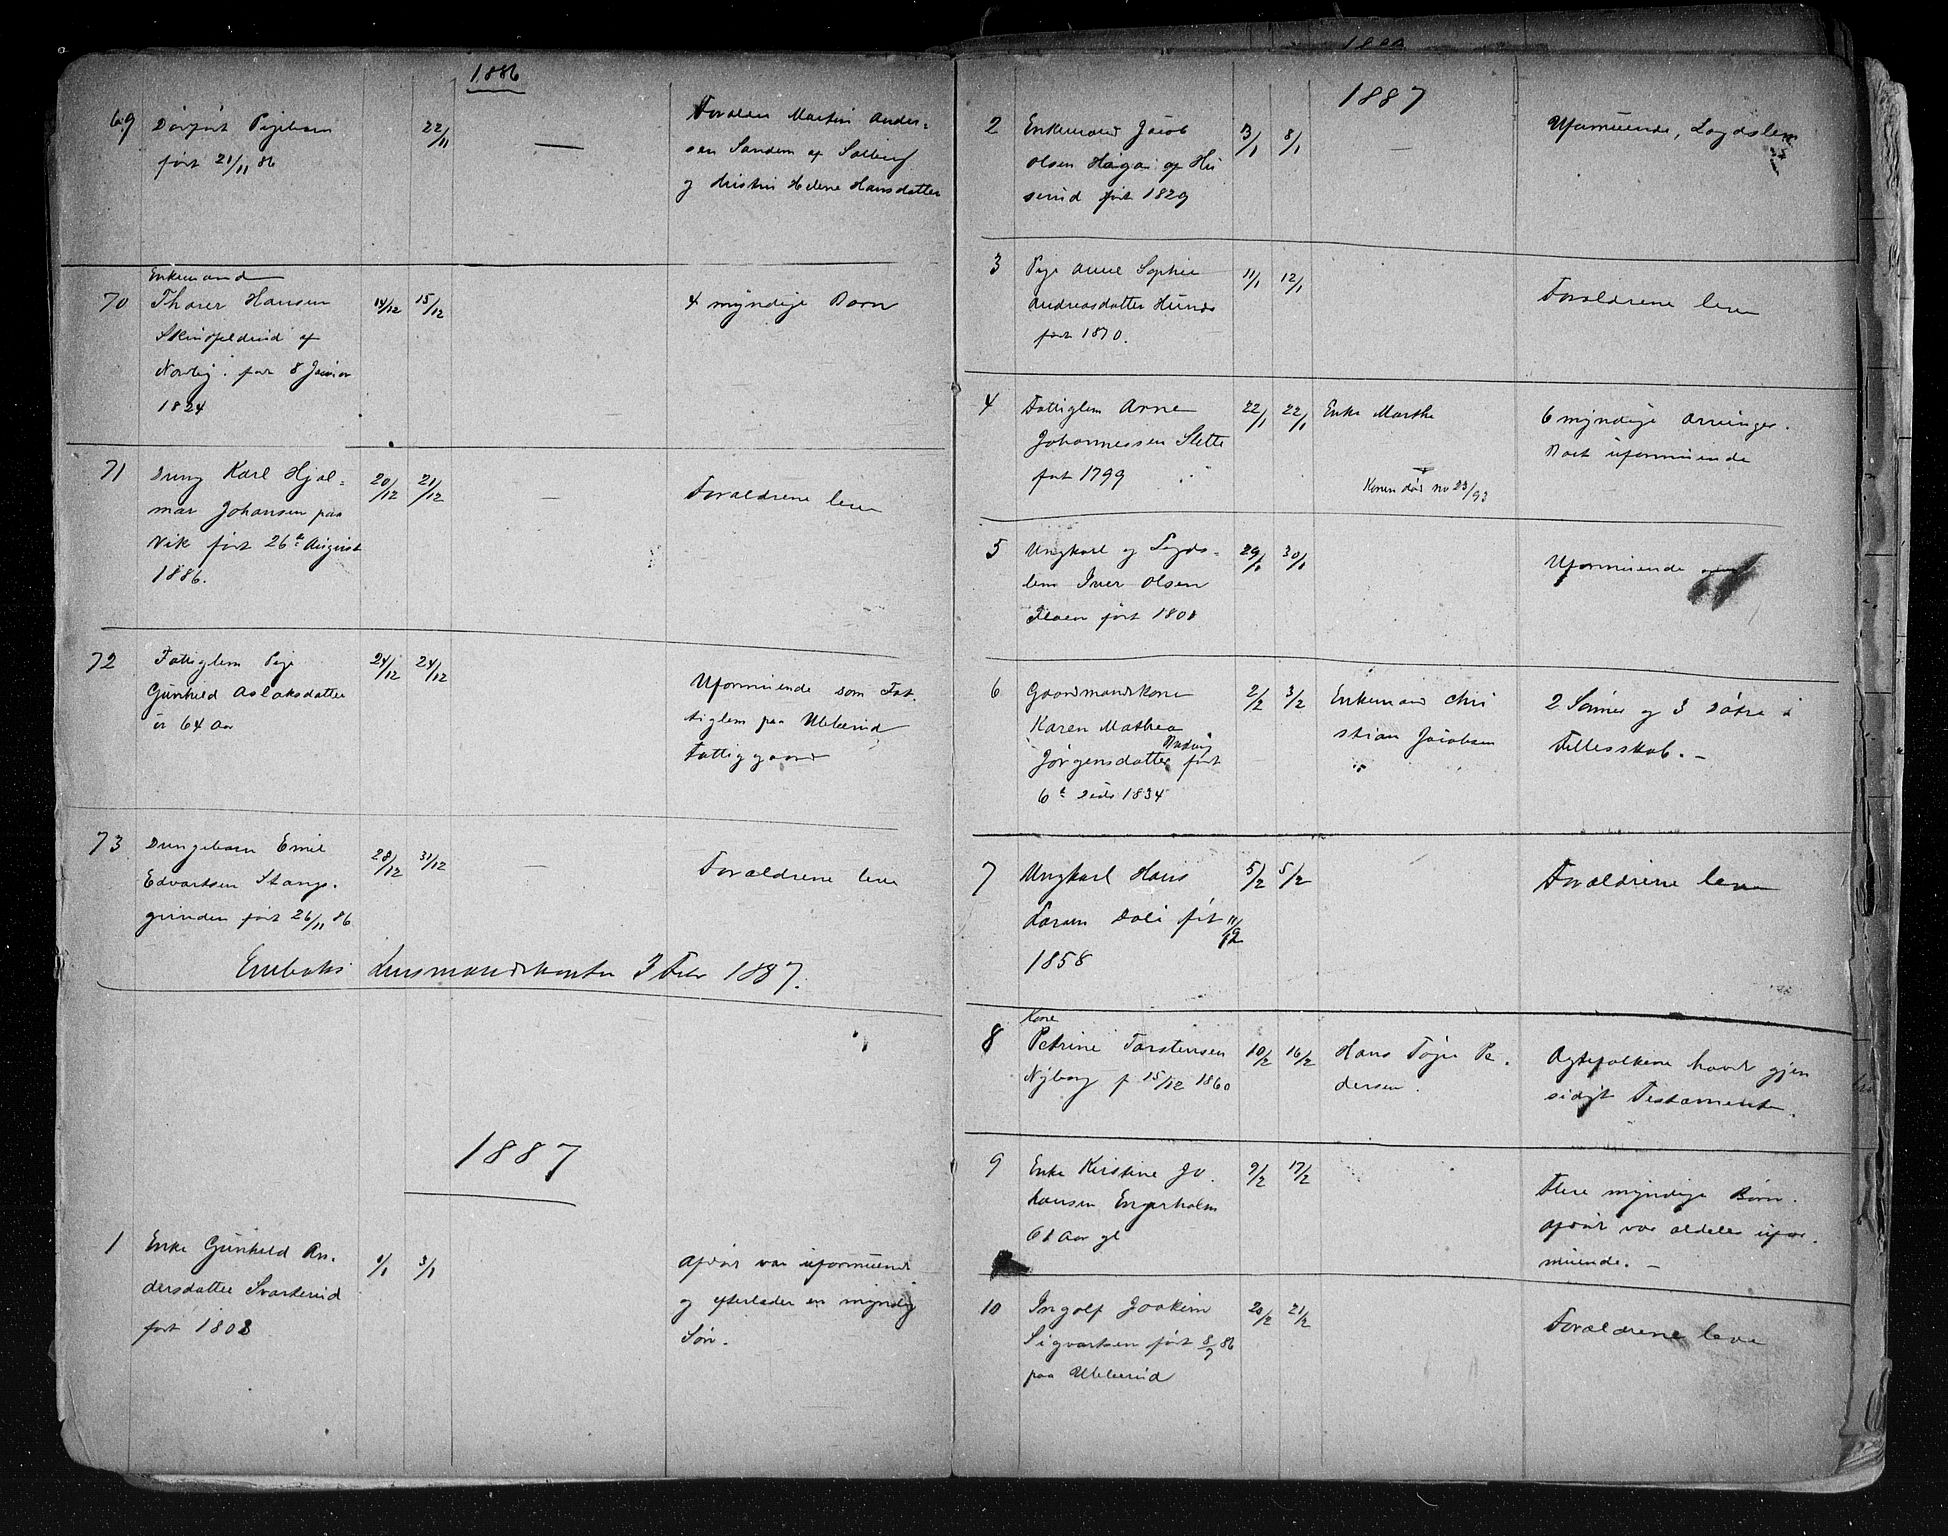 1886
69
Dødfødt Pigebarn
født 21/11 86
22/11
—
Forældre Martin Ander-
sen Sanden af Solberg
og Kristin Helene Hansdatter
70
Enkemand
Thorer Hansen
af
Nordby. født 8 Januar
1824
14/12
15/12
4 myndige Børn
71
Dreng Karl Hjal-
mar Johansen paa
Vik født 26de August
1886.
20/12
21/12
—
Forældrene leve
72
Fattiglem Pige
Gunhild Aslaksdatter
64 Aar
24/12
24/12
Uformuende som Fat
tiglem paa Ulelerud
Fattiggaard
73
Drengebarn Emil
Edvartsen Stangs-
grinden født 26/11 86
28/12
31/12
—
Forældrene leve
Enebaks Lensmandskontor 3 Febr 1887.
1887
1
Enke Gunhild An-
dersdatter Svarterud
født 1803
1/1
3/1
Afdøde var uformuende
og efterlader en myndig
Søn.
1887
2
Enkemand Jacob
Olsen Haga af Hu
serud født 1829
3/1
8/1
—
Uformuende, Lægdslem
3
Pige Anne Sophie
Andreasdatter Hunds
født 1870.
11/1
12/1
Forældrene leve
4
Fattiglem Arne
Johannessen Slette
født 1799
22/1
22/1
Enke Marthe
Konen død No 23/93
6 myndige Arvinger.
Boet uformuende
5
Ungkarl og Lægds-
lem Iver Olsen
født 1801
29/1
30/1
Uformuende
6
Gaardmandskone
Karen Mathea
Jørgensdatter født
6te Dcbr 1834
2/2
3/2
Enkemand Chri
stian Jacobsen
2 Sønner og 3 Døtre i
Fællesskab. —
7
Ungkarl Hans
Larsen Dali født 11/12
1858
5/2
5/2
Forældrene leve
8
Kone
Petrine Torstensen
Nyborg f 15/12 1860
10/2
16/2
Hans Tøger Pe-
dersen.
Ægtefolkene havde gjen
sidigt Testamente.
9
Enke Kirstine Jo
hansen Engerholm
61 Aar gl
9/2
17/2
Flere myndige Børn.
Afdøde var aldeles ufor-
muende. —
10
Ingolf Joakim
Sigvartsen født 8/7 86
paa Ulelerud
20/2
21/2
Forældrene leve